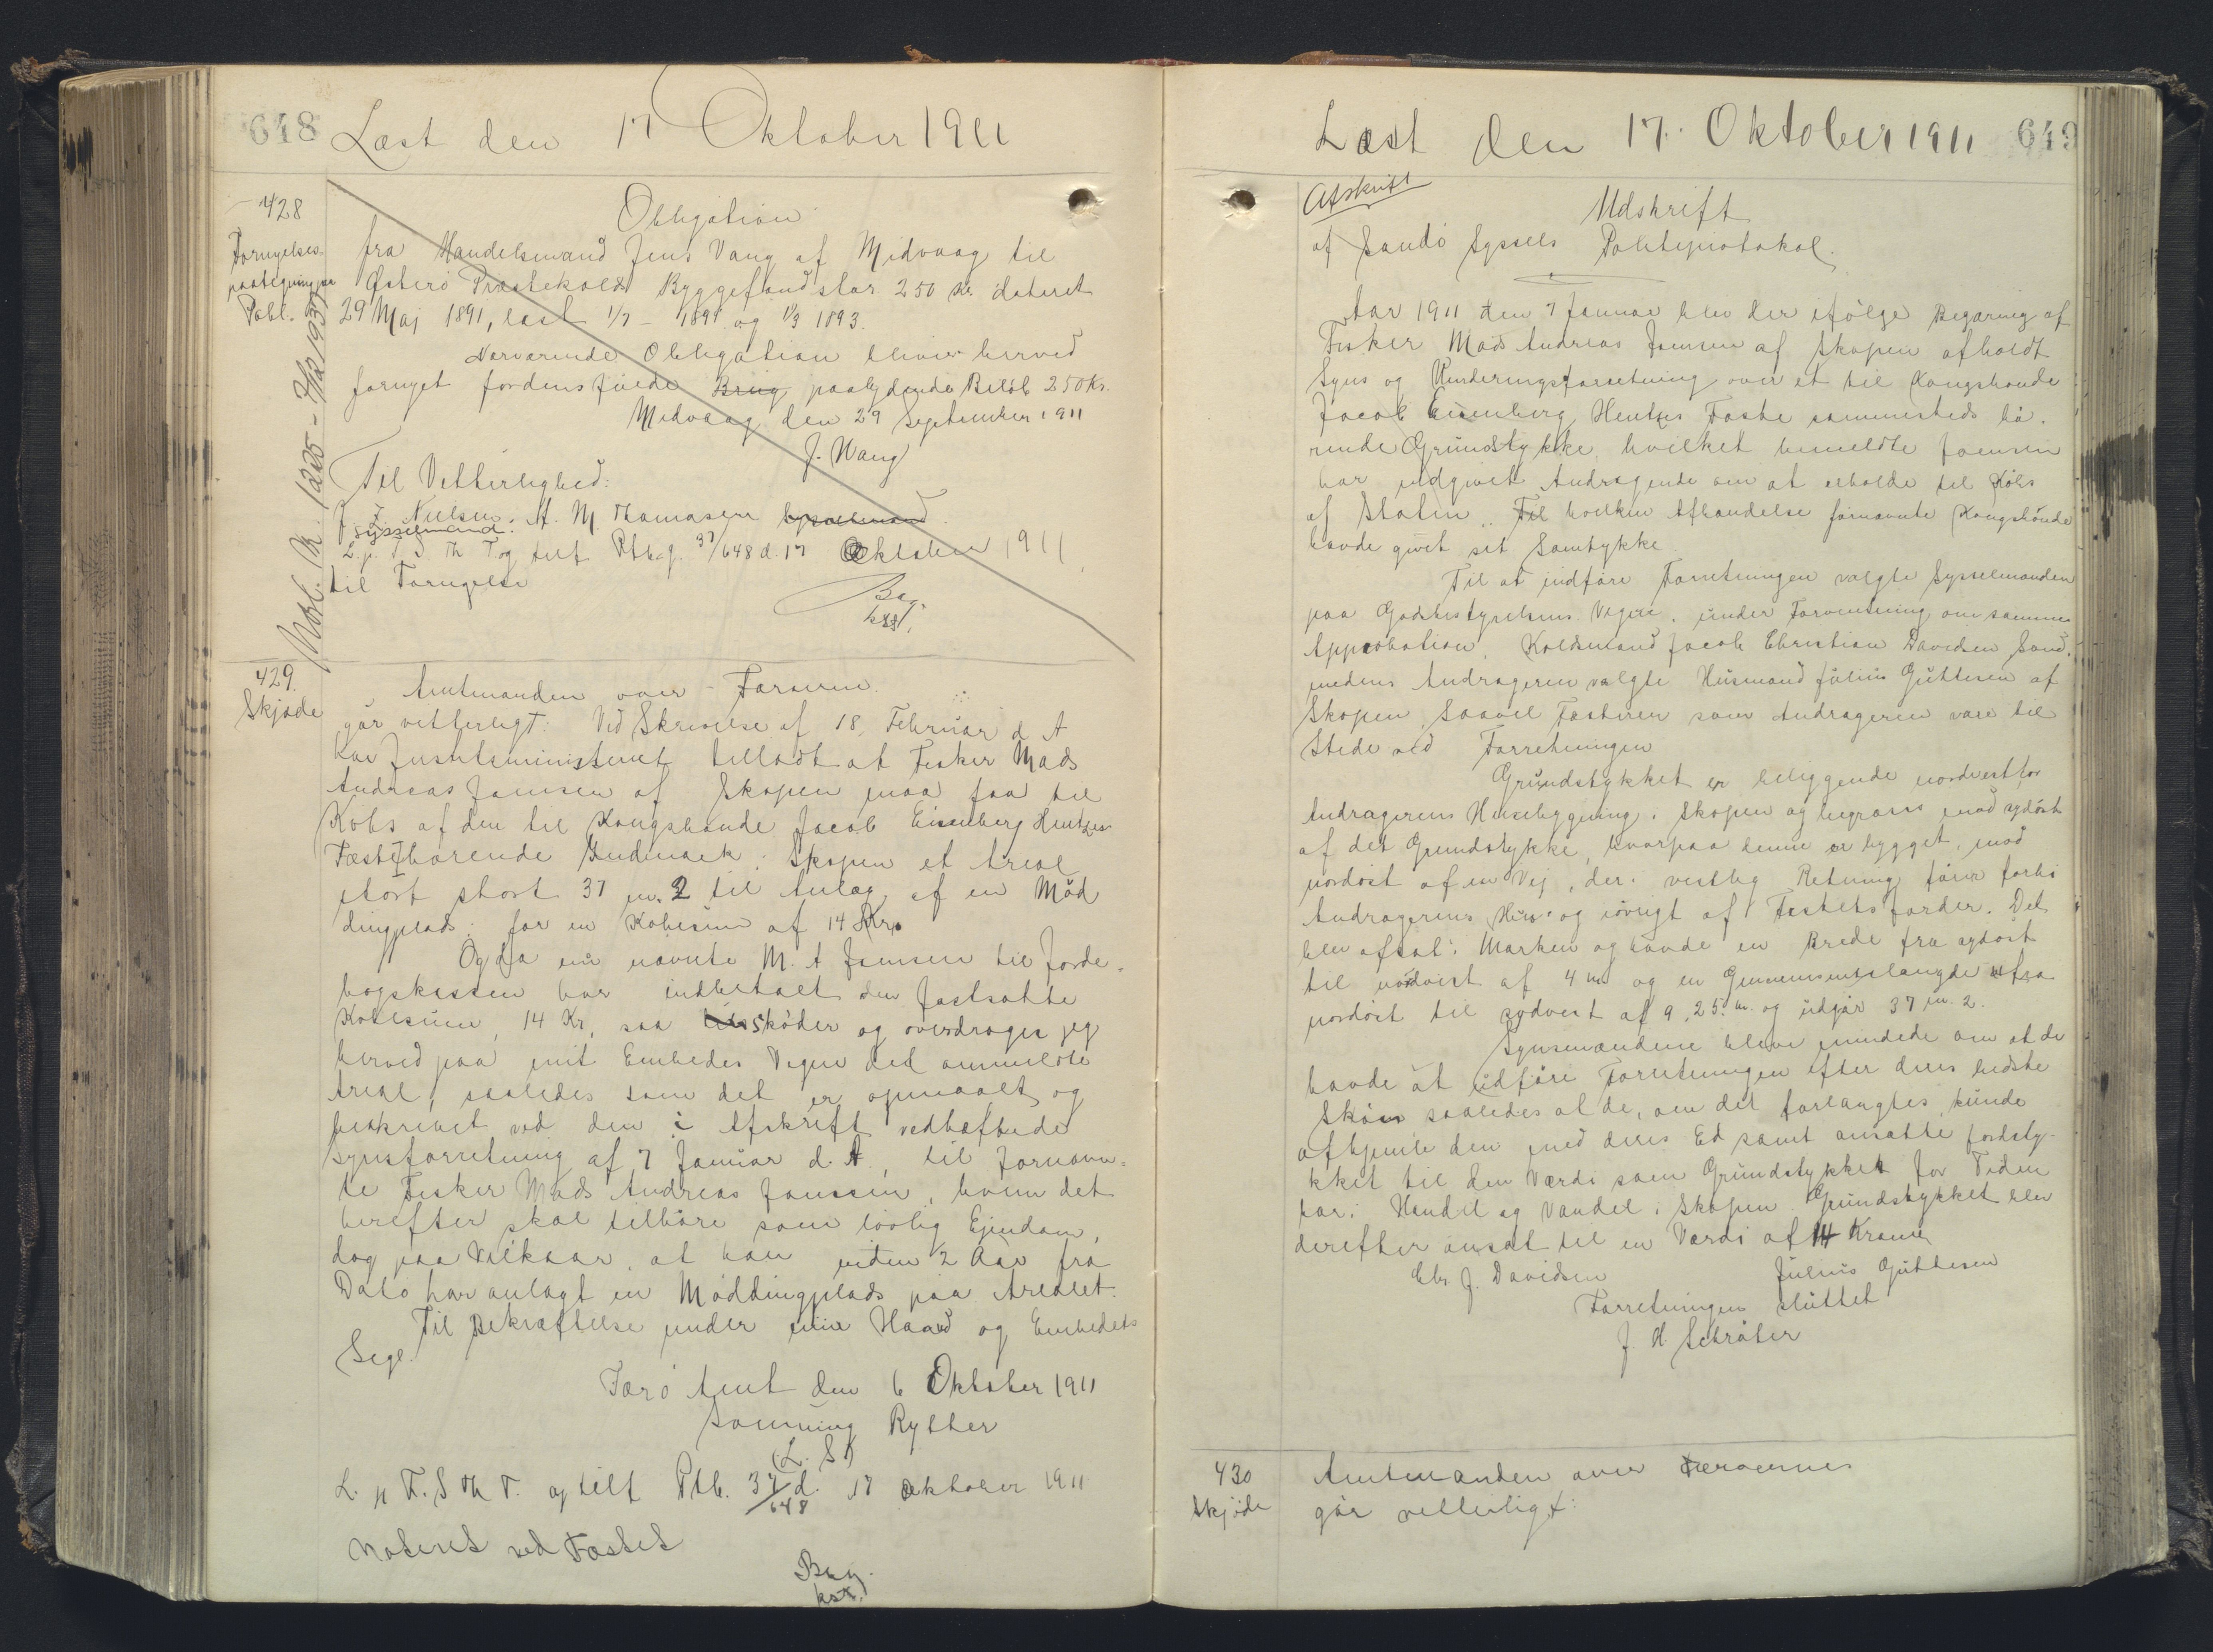 648 Læst den 17 Oktober 1911
428
Fornyelses-
paategning paa
Pobl.
Obligation
fra Handelsmand Jens Vang af Midvaag til
Østerø Præstekalds Byggefond stor 250 Kr. dateret
29 Maj 1891, læst 1/7 - 1891 og 1/3 1893.
Nærværende Obligation bliver herved
fornyet for dens fulde Brug paalydende Beløb 250 Kr.
Midvaag den 29 September 1911
J. Wang
Til Vitterlighed:
J. J. Nielsen. A. M. Thomasen Sysselmand
Sysselmand.
L. p. F. S. Th T. og tilf Ptb. g. 37/648 d. 17 Oktober 1911
til Fornyelse
Bag.
kst.
429.
Skjøde
Amtmanden over Færøerne.
gør vitterligt: Ved Skrivelse af 18. Februar d A
har Justitsministeriet tilladt at Fisker Mads
Andreas Joensen af Skopen maa faa til
Købs af den til Kongsbonde Jacob Eisenberg Hentzes
Fæste hørende Indmark i Skopen et Areal
stort stort 37 m. 2 til Anlæg af en Mød
dingplads for en Købesum af 14 Kr.
Og da nu nævnte M. A Joensen til Jorde-
bogskassen har indbetalt den fastsatte
Købesum, 14 Kr, saa skøder og overdrager jeg
herved paa mit Embedes Vegne det anmeldte
Areal, saaledes som det er opmaalt og
beskrevet ved den i Afskrift vedhæftede
Synsforretning af 7 Januar d. A., til fornævn-
te Fisker Mads Andreas Joensen, hvem det
herefter skal tilhøre som lovlig Ejendom,
dog paa Vilkaar, at han inden 2 Aar fra
Dato har anlagt en Møddingplads paa Arealet.
Til Bekræftelse under min Haand og Embedets
Segl.
Færø Amt den 6 Oktober 1911
Sonning Rytter
(L. S)
L. p F. S Th T. og tilf Ptb. 37/648 d. 17 Oktober 1911
Noteret ved Fæstet
Bag.
kst.
Læst den 17. Oktober 1911 649
Afskrift
Udskrift
af Sandø Syssels Politiprotokol.
Aar 1911 den 7 Januar blev der ifølge Begæring af
Fisker Mads Andreas Joensen af Skopen afholdt
Syns og Vurderingsforretning over et til Kongsbonde
Jacob Eisenberg Hentzes Fæste sammesteds hø-
rende Grundstykke hvilket bemeldte Joensen
har indgivet Andragende om at erholde til Købs
af Staten. Til hvilken Afhændelse fornævnte Kongsbonde
havde givet sit Samtykke.
Til at indføre Forretningen valgte Sysselmanden
paa Godsbestyrelsens Vegne, under Forventning om sammes
Approbation, Koldsmand Jacob Christian Davidsen Sand,
medens Andrageren valgte Husmand Julius Guttesen af
Skopen, Saavel Fæsteren som Andrageren vare til
Stede ved Forretningen
Grundstykket er beliggende nordvest for
Andragerens Husebygning i Skopen og begrænses mod sydøst
af det Grundstykke, hvorpaa denne er bygget, mod
nordøst af en Vej, der i vestlig Retning fører forbi
Andragerens Hus og iøvrigt af Fæstets Jorder. Det
blev afsat i Marken og havde en Brede fra sydøst
til nordvest af 4 m og en Gennemsnitslængde fra
nordøst til sydvest af 9,25 m. og udgør 37 m. 2.
Synsmændene bleve mindede om at de
havde at udføre Forretningen efter deres bedste
Skøn saaledes at de, om det forlangtes, kunde
afhjemle den med deres Ed samt ansatte Jordsty-
kket til den Værdi som Grundstykket for Tiden
har i Handel og Vandel i Skopen. Grundstykket blev
derefter ansat til en Værdi af 14 Kroner
Chr. J. Davidsen Julius Guttesen
Forretningen sluttet
J. H. Schrøter
430
Skjøde
Amtmanden over Færøernes
gør vitterligt: